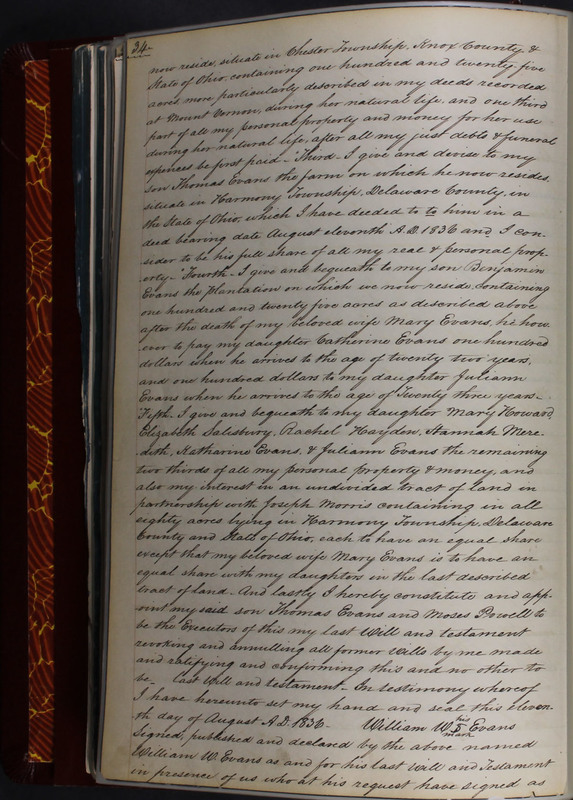 34
now reside, situate in Chester Township, Knox County &
State of Ohio, containing one hundred and twenty five
acres more particularly described in my deeds recorded
at Mount Vernon, during her natural life, and one third
part of all my personal property and money for her use
during her natural life, after all my just debts & funeral
expences be first paid - Third - I give and devise to my
son Thomas Evans the farm on which he now resides,
situate in Harmony Township, Delaware County, in
the State of Ohio, which I have deeded to to him in a
deed bearing date August eleventh A.D. 1836 and I con-
sider to be his full share of all my real & personal prop-
erty - Fourth - I give and bequeath to my son Benjamin
Evans the Plantation on which we now reside, containing
one hundred and twenty five acres as described above
after the death of my beloved wife Mary Evans, he how
ever to pay my daughter Catherine Evans one hundred
dollars when he arrives to the age of twenty two years,
and one hundred dollars to my daughter Juliann
Evans when he arrives to the age of Twenty three years -
Fifth - I give and bequeath to my daughter Mary Howard,
Elizabeth Salisbury, Rachel Hayden, Hannah Mere-
dith, Katharine Evans, & Juliann Evans the remaining
two thirds of all my personal property & money, and
also my interest in an undivided tract of land in
partnership with Joseph Morris containing in all
eighty acres lying in Harmony Township, Delaware
County and State of Ohio, each to have an equal share
except that my beloved wife Mary Evans is to have an
equal share with my daughters in the last described
tract of land - And lastly I hereby constitute and app-
oint my said son Thomas Evans and Moses Powell to
be the Executors of this my last Will and testament
revoking and annulling all former Wills by me made
and ratifying and confirming this and no other to
be - Last Will and testament - In testimony whereof
I have hereunto set my hand and seal this eleven-
th day of August A.D. 1836 William W. his mark Evans
Signed, published and declared by the above named
William W. Evans as and for his last Will and Testament
in presence of us who at his request have signed as